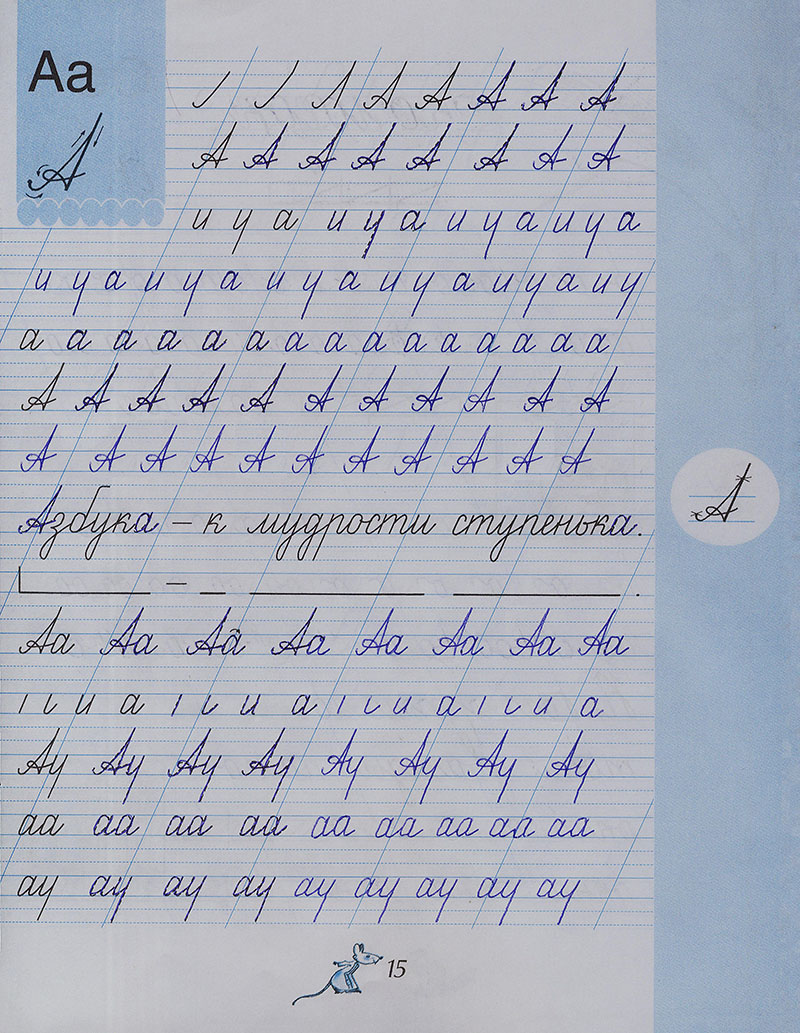 Аа
А
Л А А А А А
А А А А А А А А
и у а и у а и у а и у а
и у а и у а и у а и у а и у а и у
а а а а а а а а а а а а а а а
А А А А А А А А А А А
А А А А А А А А А А А
Азбука – к мудрости ступенька.
А
–   .
Аа Аа Аа Аа Аа Аа Аа Аа
и а и а и а и а
Ау Ау Ау Ау Ау Ау Ау Ау
аа аа аа аа аа аа аа аа аа
ау ау ау ау ау ау ау ау ау
15